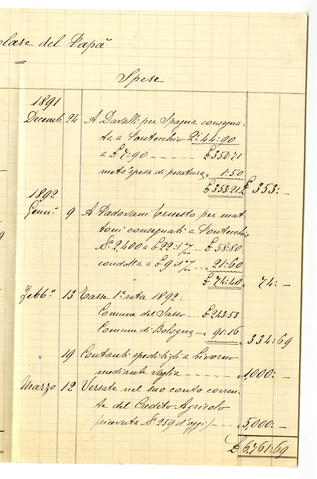 del Papà
Spese
1891
Decemb. 24 A Davalli per Spagna consegna-
ta a Pontecchio 2:44:90
a £ 7:90 £ 351:71
metà spesa di pesatura 1:50
£ 353:21 £ 353:-
1892
Genn. 9 A Padovani Ernesto per mat-
toni consegnati a Pontecchio
N. 2400 a £ 22:
condotta a £ 9: 21:60
74:-
Febb. 13 Tassa 1a rata 1892:
Comune del Sasso £ 243:53
Comune di Bologna 91:16 334:69
" 19 Contanti speditigli a Livorno
mediante vaglia 1,000:-
Marzo 12 Versate nel suo conto corren-
te del Credito Agricolo
(ricevuta N. 259 d'oggi) 5,000:-
£ 6,761:69